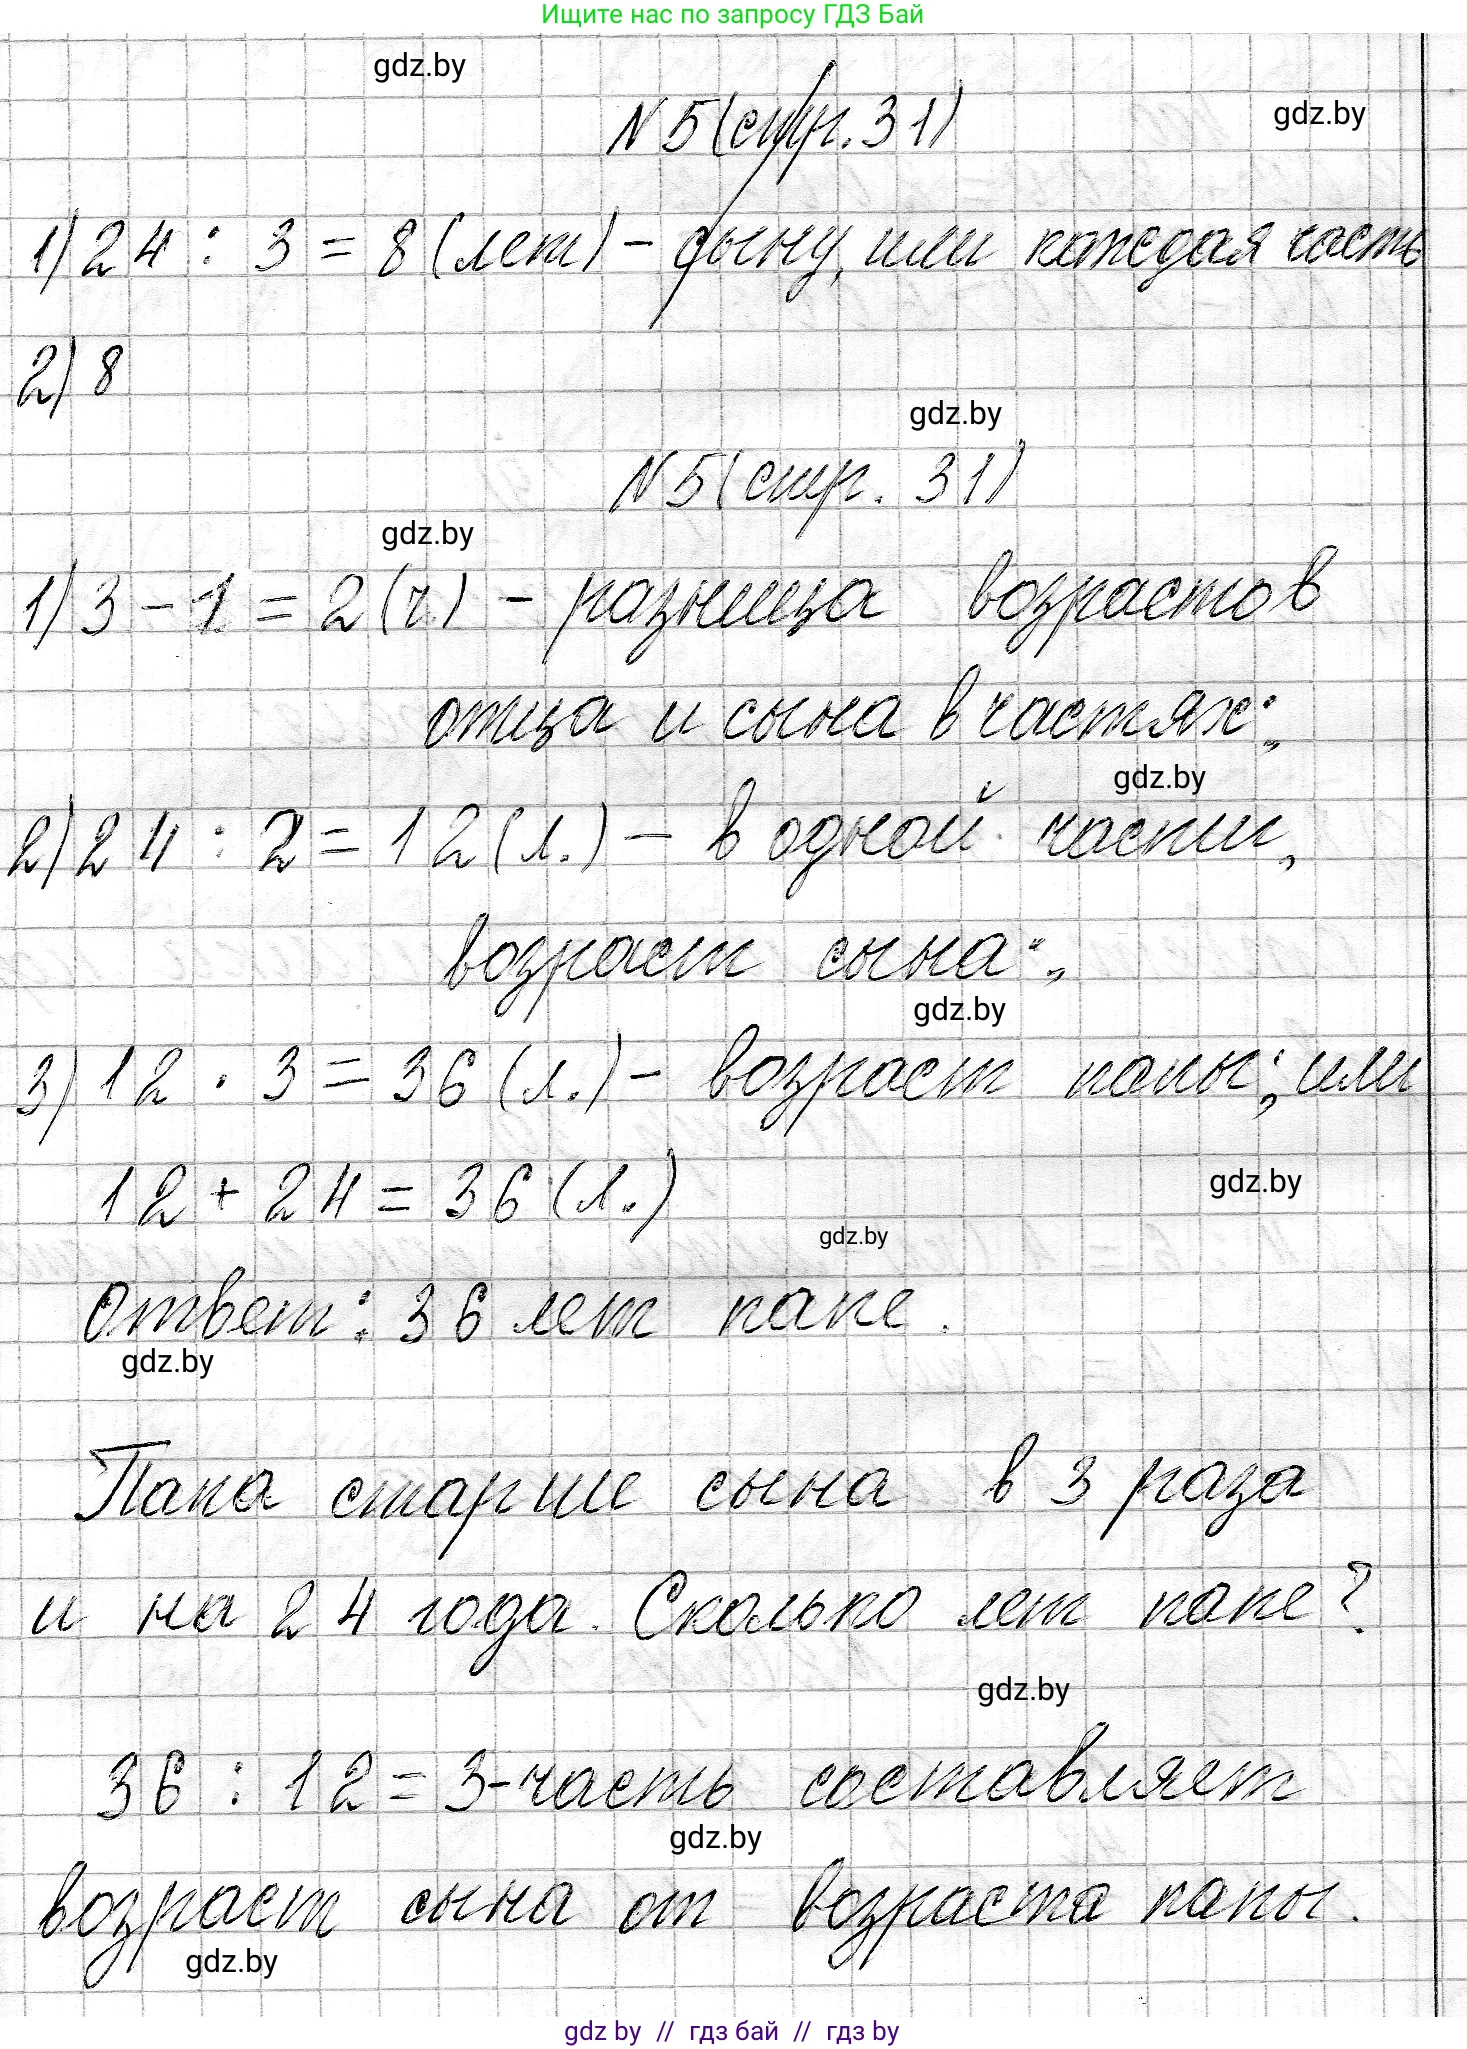 Ищите нас по запросу ГДЗ Бай
gdz.by
N 5 (стр. 31)
gdz.by
1) 24 : 3 = 8 (лет) - сыну, или каждая часть
2) 8
gdz.by
N 5 (стр. 31)
gdz.by
1) 3 - 1 = 2 (ч.) - разница возрастов
отца и сына в частях;
gdz.by
2) 24 : 2 = 12 (л.) - в одной части,
возраст сына;
gdz.by
3) 12 · 3 = 36 (л.) - возраст папы; или
12 + 24 = 36 (л.)
gdz.by
gdz.by
Ответ: 36 лет папе.
gdz.by
Папа старше сына в 3 раза
и на 24 года. Сколько лет папе?
gdz.by
36 : 12 = 3 - часть составляет
gdz.by
возраст сына от возраста папы.
gdz.by
gdz by // гдз бай // гдз by